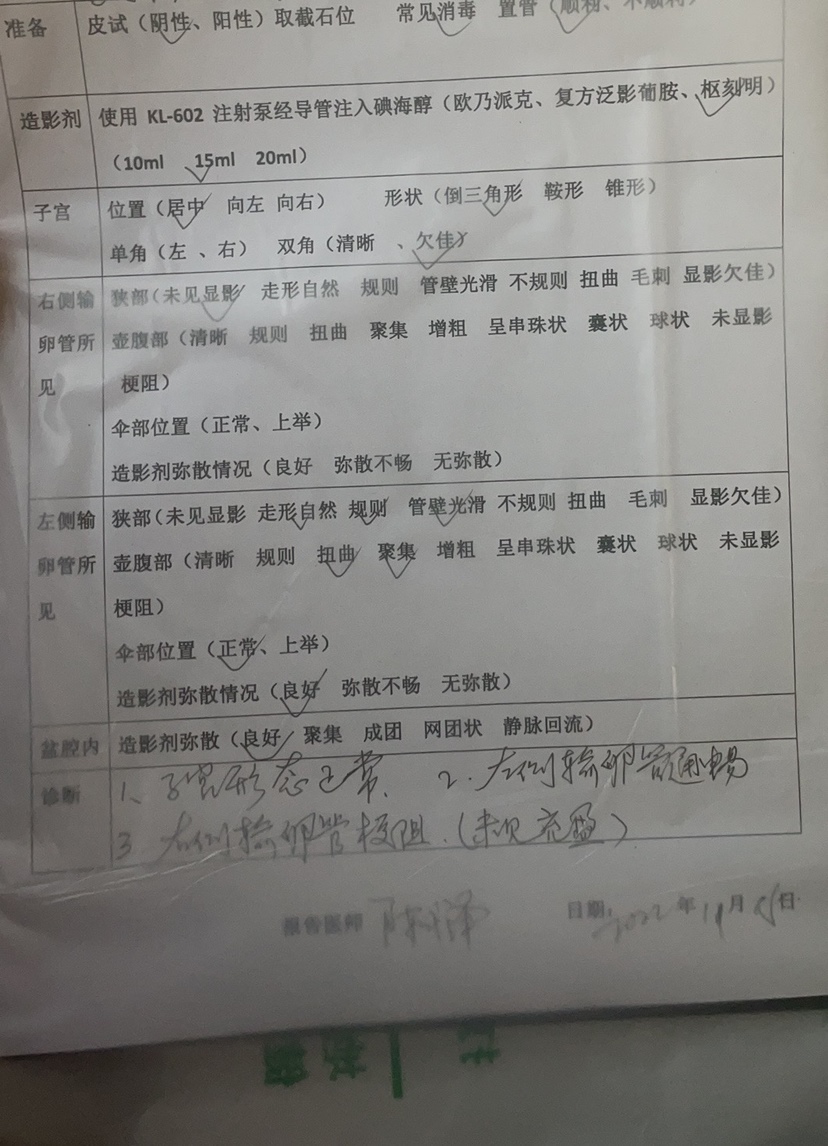 准备 皮试（阴性、阳性）取截石位 常见消毒 置管（顺利、不顺利）
造影剂 使用 KL-602 注射泵经导管注入碘海醇（欧乃派克、复方泛影葡胺、枢刻明）
（10ml 15ml 20ml）
子宫 位置（居中 向左 向右） 形状（倒三角形 鞍形 锥形）
单角（左 、右） 双角（清晰 、欠佳）
右侧输卵管所见 狭部（未见显影 走形自然 规则 管壁光滑 不规则 扭曲 毛刺 显影欠佳）
壶腹部（清晰 规则 扭曲 聚集 增粗 呈串珠状 囊状 球状 未显影
梗阻）
伞部位置（正常、上举）
造影剂弥散情况（良好 弥散不畅 无弥散）
左侧输卵管所见 狭部（未见显影 走形自然 规则 管壁光滑 不规则 扭曲 毛刺 显影欠佳）
壶腹部（清晰 规则 扭曲 聚集 增粗 呈串珠状 囊状 球状 未显影
梗阻）
伞部位置（正常、上举）
造影剂弥散情况（良好 弥散不畅 无弥散）
盆腔内 造影剂弥散（良好 聚集 成团 网团状 静脉回流）
诊断 1、子宫形态正常. 2. 左侧输卵管通畅
3 右侧输卵管梗阻.（未见充盈）
报告医师 日期：2022年11月 日